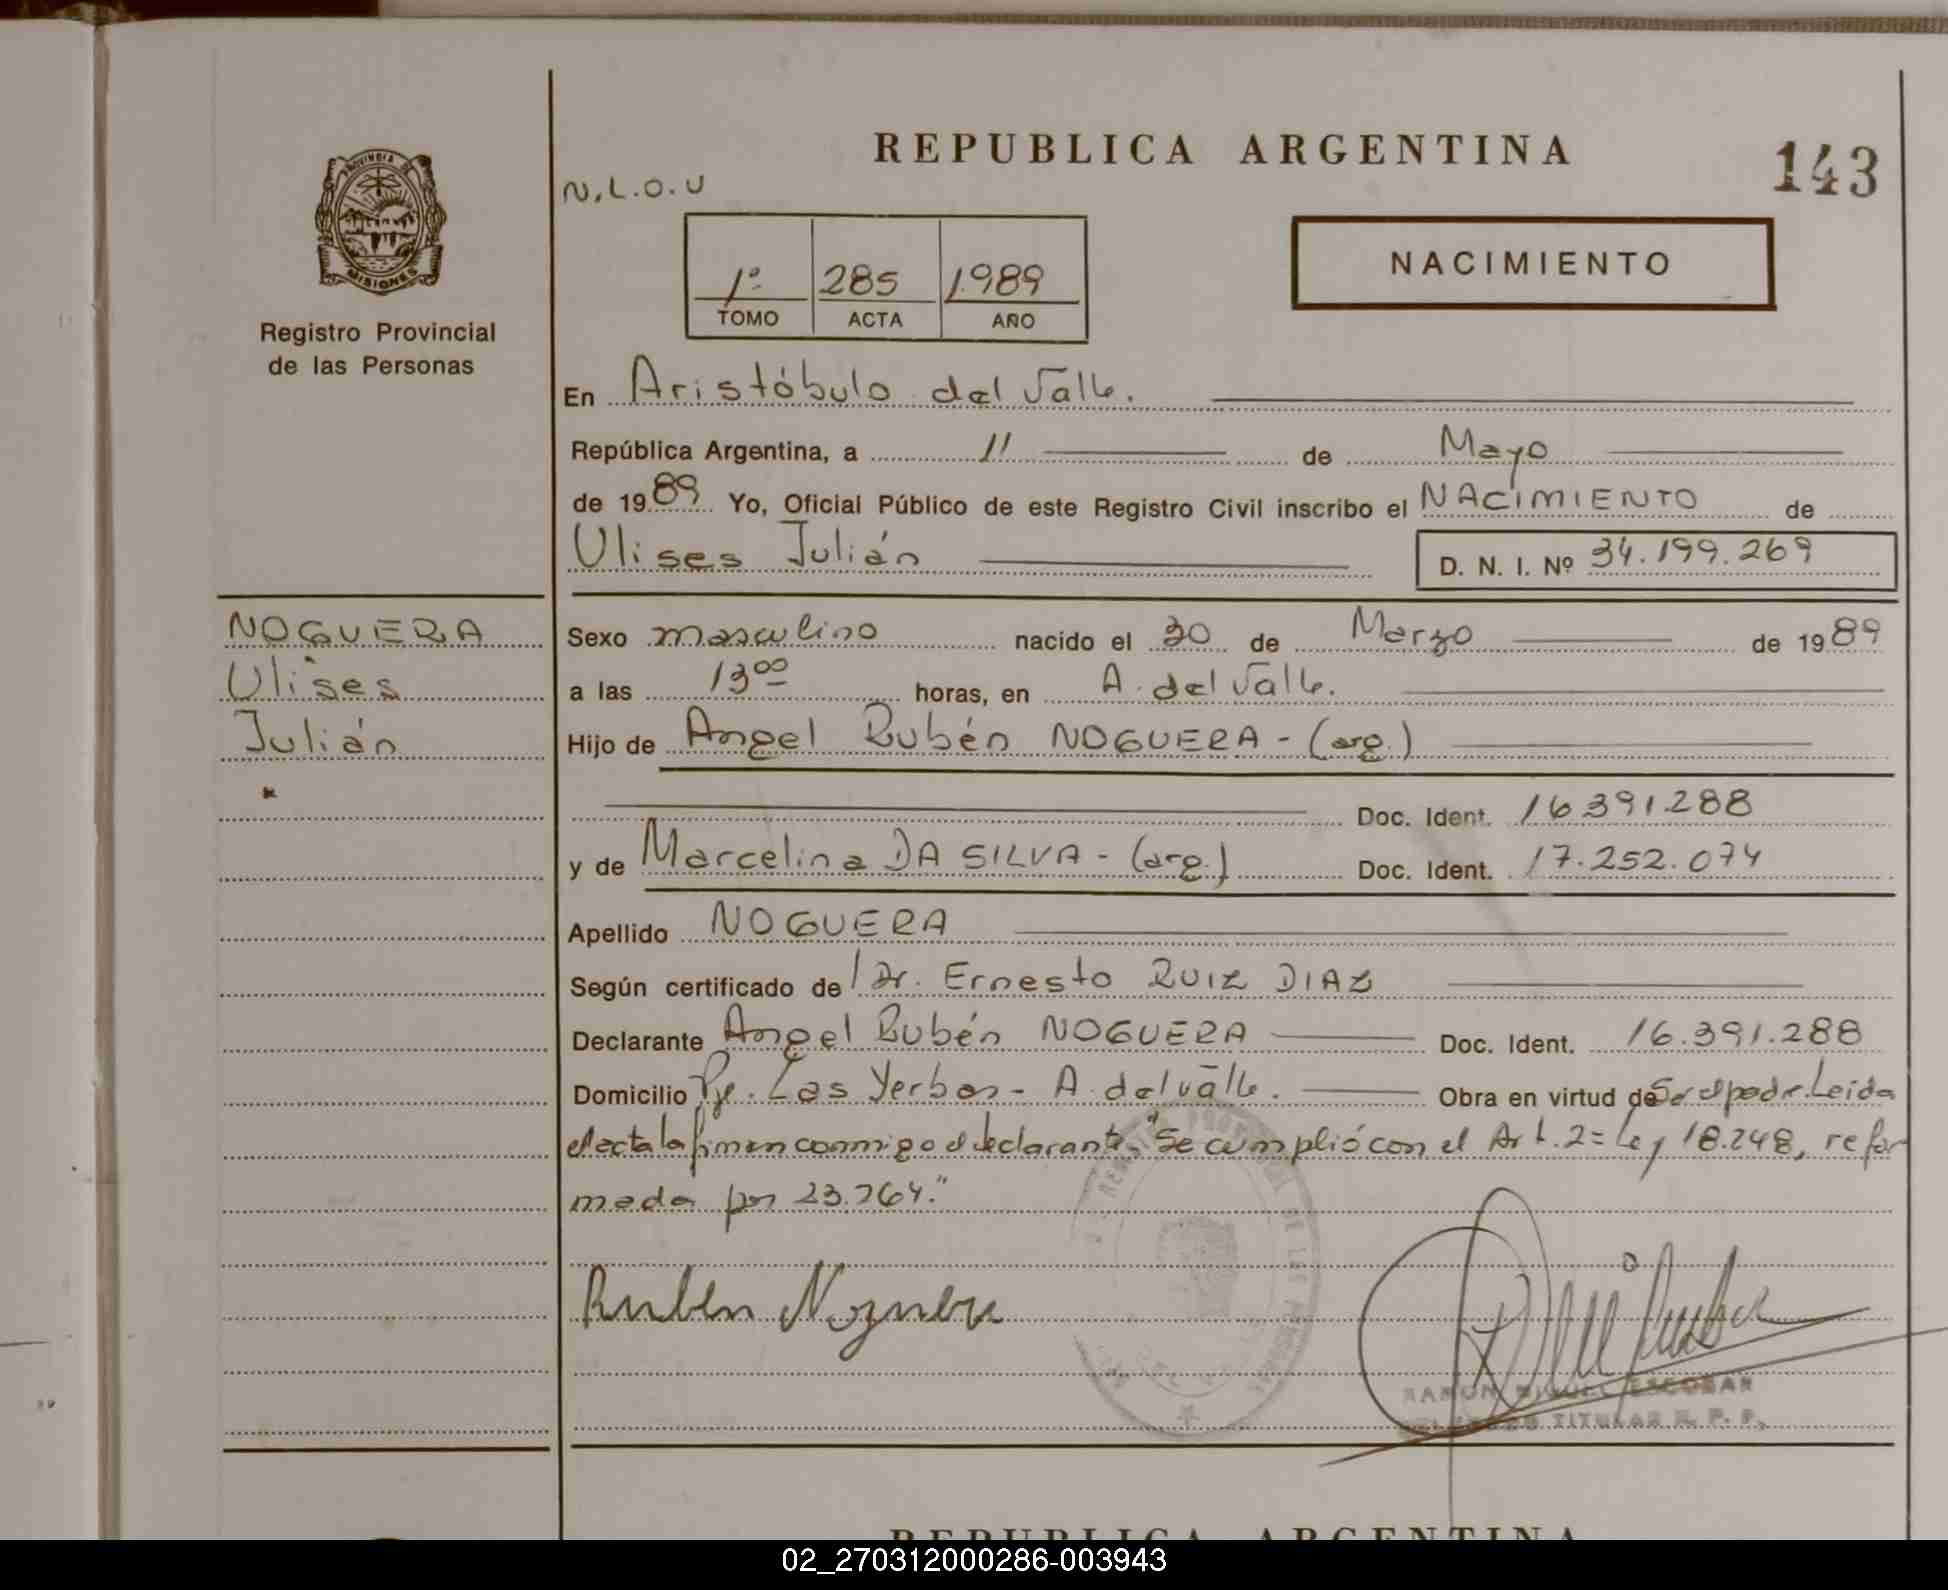 REPUBLICA ARGENTINA
143
PROVINCIA DE
MISIONES
Registro Provincial
de las Personas
N.L.O.U
1º 285 1.989
TOMO ACTA AÑO
NACIMIENTO
En Aristóbulo del Valle.
República Argentina, a 11 de Mayo
de 1989 Yo, Oficial Público de este Registro Civil inscribo el NACIMIENTO de
Ulises Julián D. N. I. Nº 34.199.269
NOGUERA
Ulises
Julián
Sexo masculino nacido el 30 de Marzo de 1989
a las 13⁰⁰ horas, en A. del Valle.
Hijo de Angel Rubén NOGUERA - (arg.)
Doc. Ident. 16.391.288
y de Marcelina DA SILVA - (arg.) Doc. Ident. 17.252.074
Apellido NOGUERA
Según certificado de Dr. Ernesto RUIZ DIAZ
Declarante Angel Rubén NOGUERA Doc. Ident. 16.391.288
Domicilio Pje. Las Yerbas - A. del Valle. Obra en virtud de Ser el padre. Leída
el acta la firman conmigo el declarante, "Se cumplió con el Art. 2= Ley 18.248, refor
mada por 23.264."
Ruben Noguera
RAMON MIGUEL ESCOBAR
TITULAR R. P. P.
REPUBLICA ARGENTINA
02_270312000286-003943